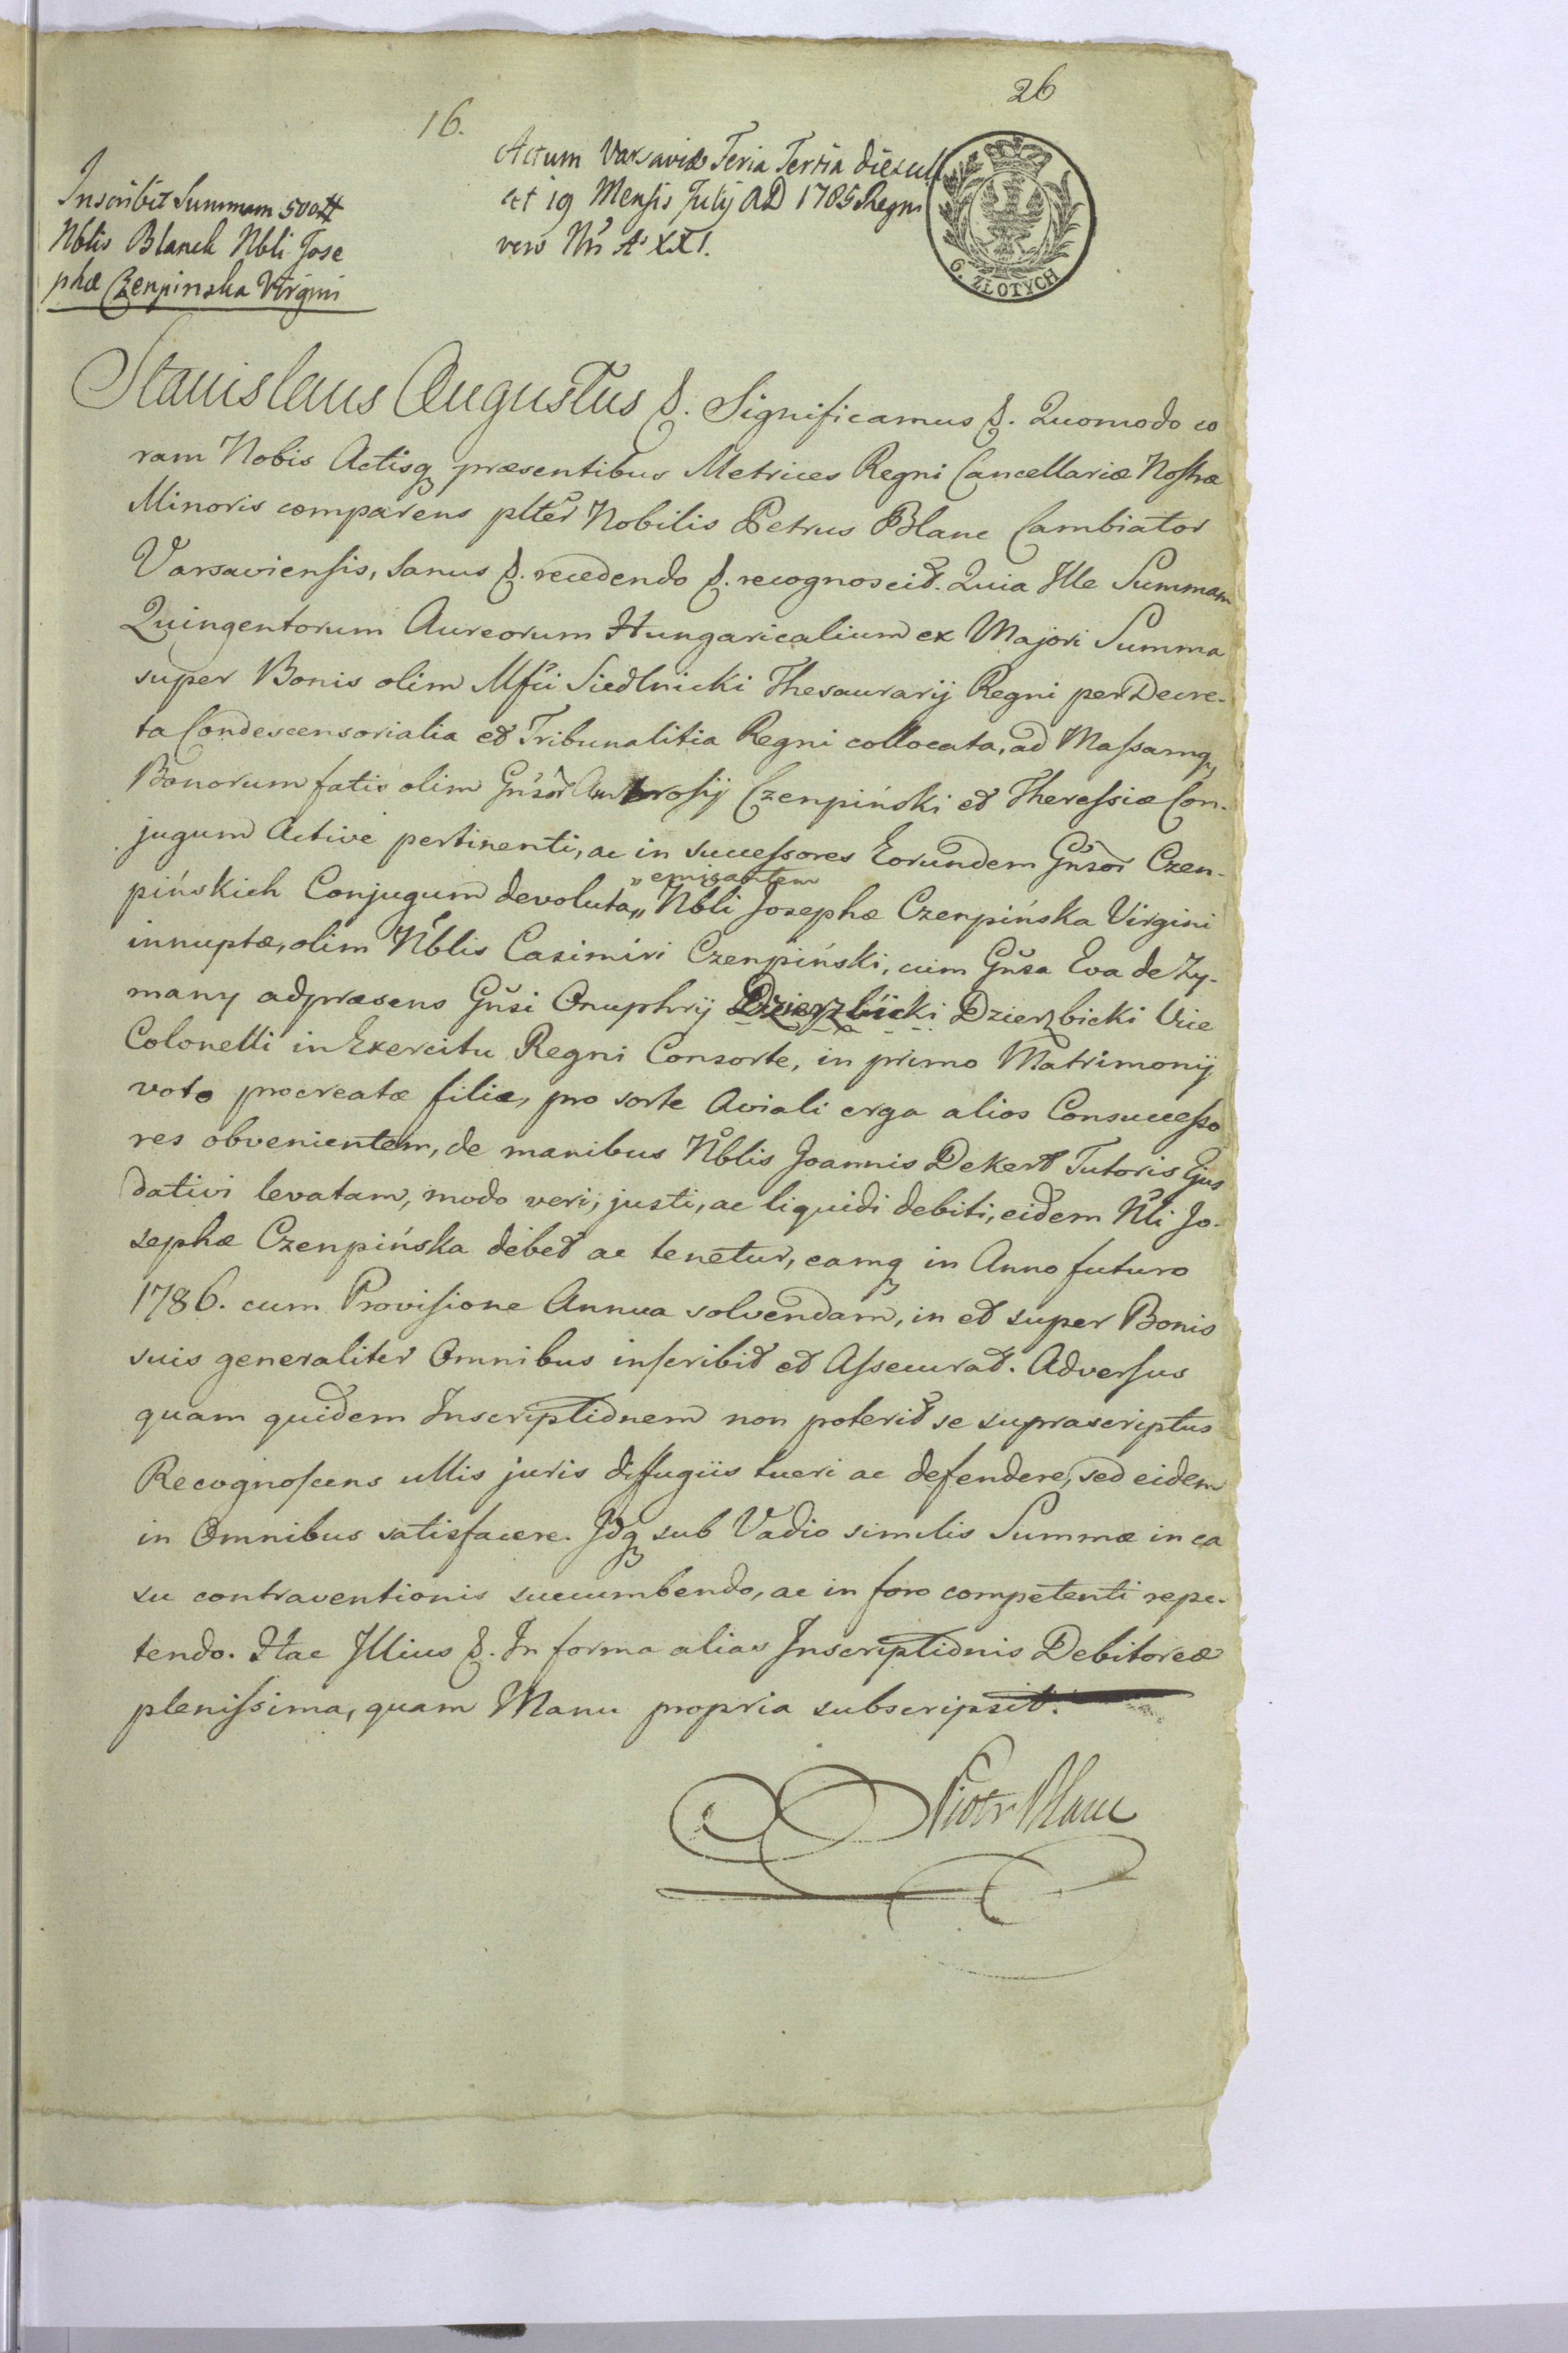 26
16.
Actum Varsaviæ Feria Tertia die
et 19 Mensis Julÿ AD 1785 Regni
vero Nri Aº XXI.
6. ZŁOTYCH
Inscribit Summam 500#
Nblis Blanck Nbli Jose
phæ Czenpinska Virgini
Stanislaus Augustus &. Significamus &. Quomodo co
ram Nobis Actisq præsentibus Metrices Regni Cancellariæ Nostræ
Minoris comparens plter Nobilis Petrus Blanc Cambiator
Varsaviensis, sanus &. recedendo &. recognoscit. Quia Ille Summam
Quingentorum Aureorum Hungaricalium ex Majori Summa
super Bonis olim Mfci Siedlnicki Thesaurarij Regni per Decre-
ta Condescensorialia et Tribunalitia Regni collocata, ad Massamq,
Bonorum fatis olim Gnsor Ambrosij Czenpiński et Theressiæ Con-
jugum Active pertinenti, ac in successores Eorundem Gnsor Czen-
pińskich Conjugum devoluta „ Nbli Josephæ Czenpińska Virgini
„ emigantem
innuptæ, olim Nblis Casimiri Czenpiński, cum Gnsa Eva de Zy-
many adpræsens Gnsi Onuphrij Dzierzbicki Dzierzbicki Vice
Colonelli in Exercitu Regni Consorte, in primo Matrimonij
voto procreatæ filiæ, pro sorte Aviali erga alios Consuccesso
res obvenientem, de manibus Nblis Joannis Dekert Tutoris Ejus
dativi levatam, modo veri, justi, ac liquidi debiti, eidem Nli Jo-
sephæ Czenpińska debet ac tenetur, eamq in Anno futuro
1786. cum Provisione Annua solvendam, in et super Bonis
suis generaliter Omnibus inscribit et Assecurat. Adversus
quam quidem Inscriptionem non poterit se suprascriptus
Recognoscens ullis juris diffugiis tueri ac defendere, sed eidem
in Omnibus satisfacere. Idq sub Vadio similis Summæ in ca
su contraventionis succumbendo, ac in foro competenti repe-
tendo. Hac Illius &. In forma alias Inscriptionis Debitoreæ
plenissima, quam Manu propria subscripsit.
Piotr Blanc